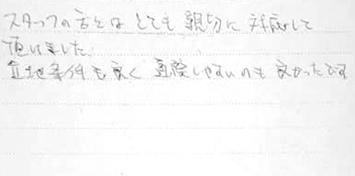 スタッフの方とはとても親切に対応して
頂きました
立地条件も良く 直しやすいのも良かったです